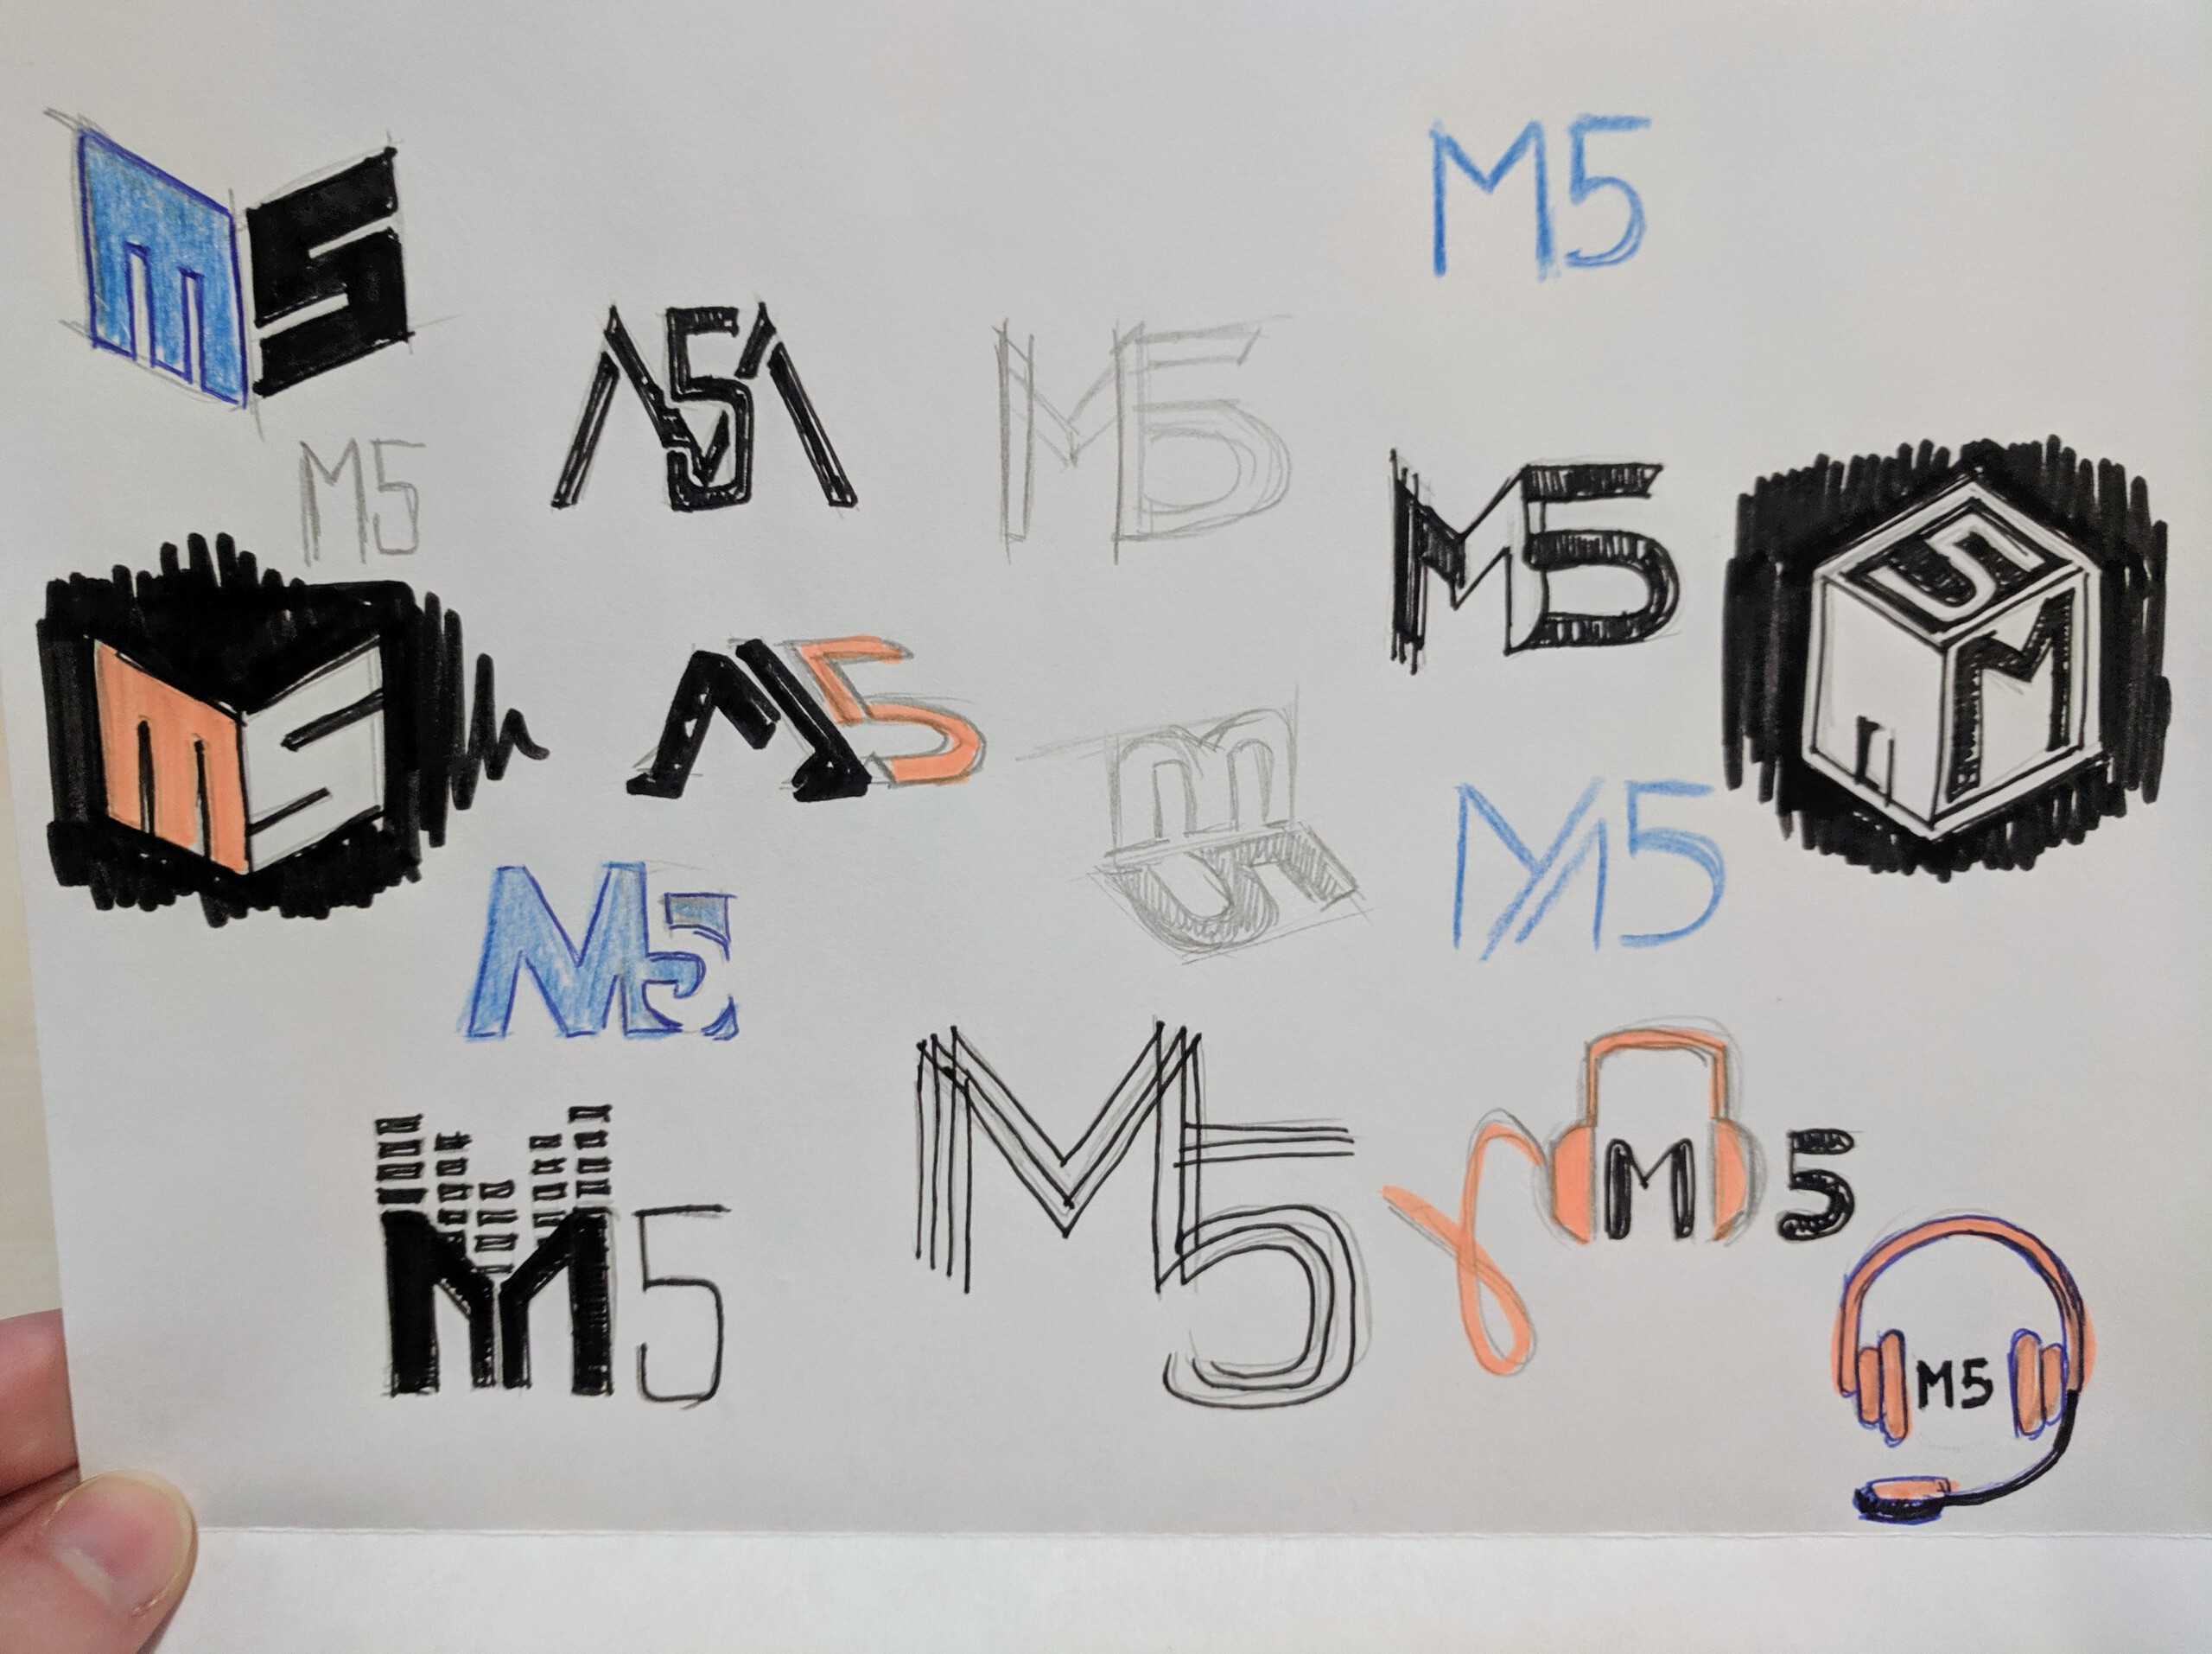 M5
M5
M5
M5
M5
M5
M5
M5
5
M
M5
M5
M5
M5
M5
M5
M5
M5